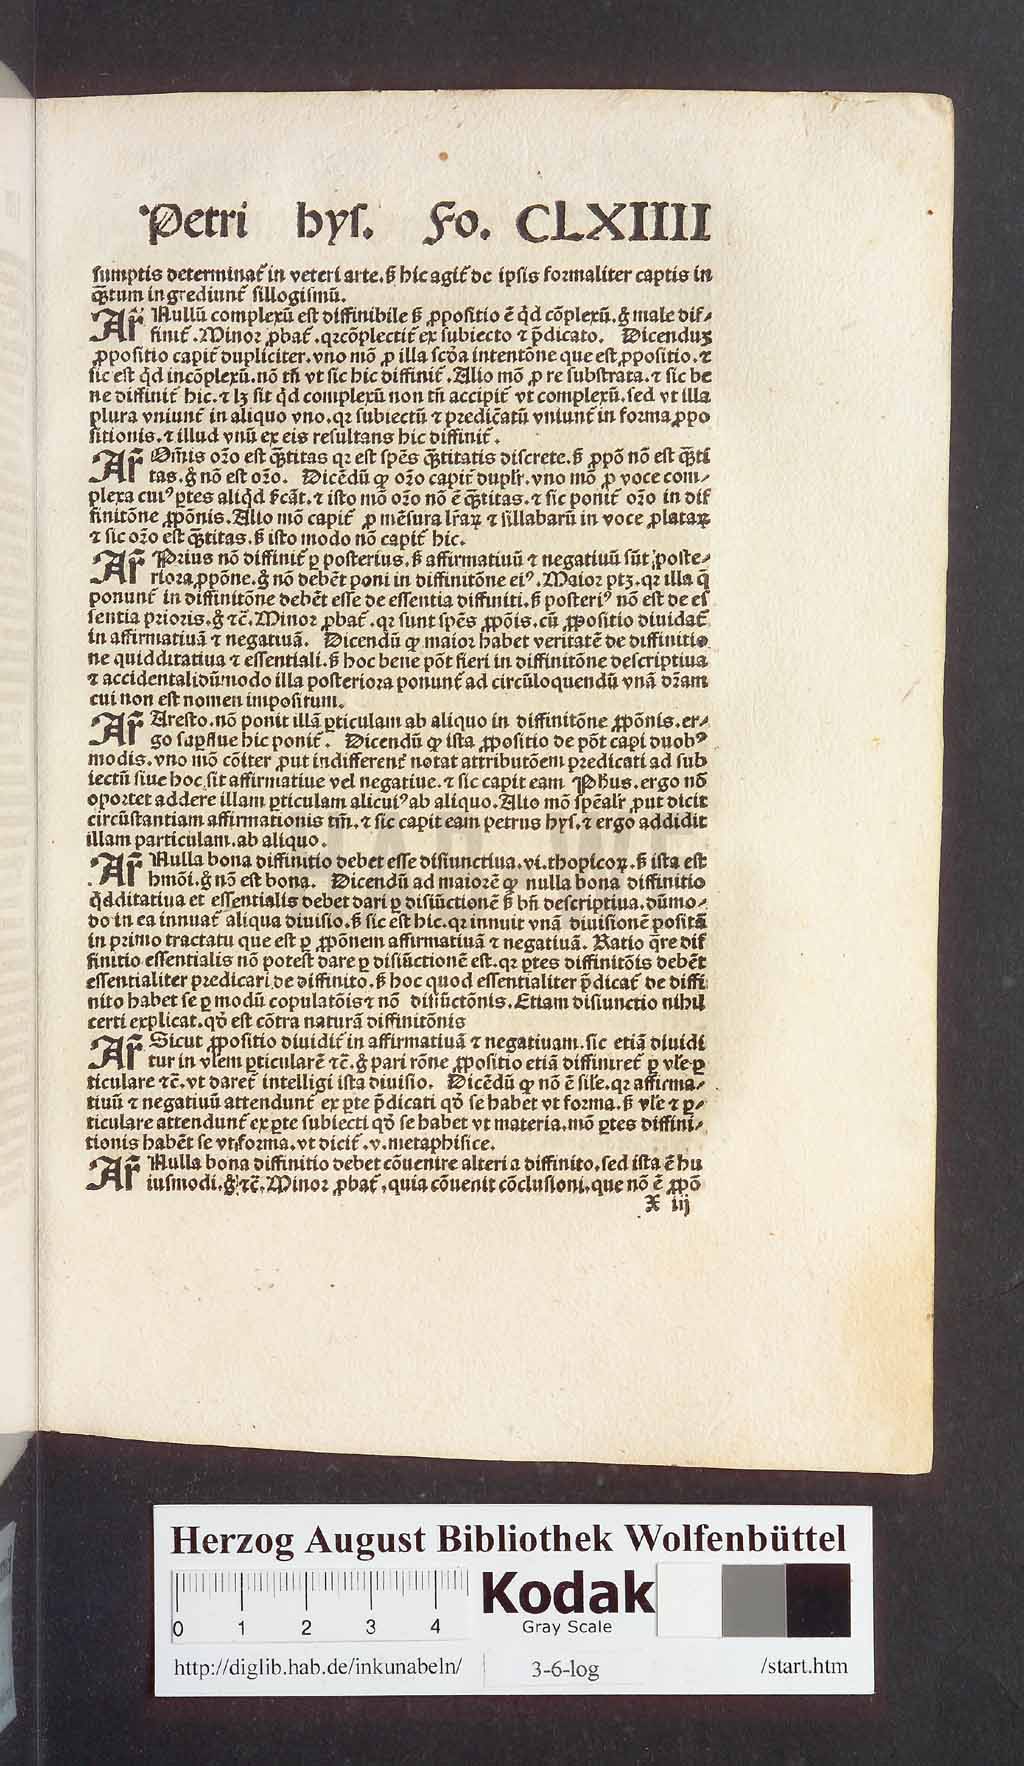 Petri hyſ. Fo. CLXIIII
ſumptis determinat᷑ in veteri arte. ß hic agit᷑ de ipſis formaliter captis in
qᷓtum ingrediunt᷑ ſillogiſmū.
Ar̄ Nullū complexū eſt diffinibile ß ꝓpoſitio ē qd̓ cōplexū. g̊ male dif⸗
finit᷑. Minor ꝓbat᷑. qꝛ cōplectit᷑ ex ſubiecto ⁊ p̄dicato. Dicenduꝫ
ꝓpoſitio capit᷑ dupliciter. vno mō ꝓ illa ſcd̓a intentōne que eſt ꝓpoſitio. ⁊
ſic eſt qd̓ incōplexū. nō tn̄ vt ſic hic diffinit᷑. Alio mō ꝓ re ſubſtrata. ⁊ ſic be
ne diffinit᷑ hic. ⁊ lꝫ ſit qd̓ complexū non tn̄ accipit᷑ vt complexū. ſed vt illa
plura vniunt᷑ in aliquo vno. qꝛ ſubiectū ⁊ predicātū vniunt᷑ in forma ꝓpo
ſitionis. ⁊ illud vnū ex eis reſultans hic diffinit᷑.
Ar̄ Om̄is oꝛo eſt qᷓtitas qꝛ eſt ſpēs qᷓtitatis diſcrete. ß ꝓpō nō eſt qᷓti
tas. g̊ nō eſt oꝛo. Dicēdū ꝙ oꝛo capit᷑ duplr̄. vno mō ꝓ voce com⸗
plexa cuiꝰ ꝑtes aliqd̓ ſcāt. ⁊ iſto mō oꝛo nō ē qᷓtitas. ⁊ ſic ponit᷑ oꝛo in dif
finitōne ꝓpōnis. Alio mō capit᷑ ꝓ mēſura lr̄aꝝ ⁊ ſillabarū in voce ꝓlataꝝ
⁊ ſic oꝛo eſt qᷓtitas. ß iſto modo nō capit᷑ hic.
Ar̄ Prius nō diffinit᷑ ꝑ poſterius. ß affirmatiuū ⁊ negatiuū ſūt poſte⸗
riora ꝓpōne. g̊ nō debēt poni in diffinitōne eiꝰ. Maior ptꝫ. qꝛ illa q̄
ponunt᷑ in diffinitōne debēt eſſe de eſſentia diffiniti. ß poſteriꝰ nō eſt de eſ
ſentia prioris. g̊ ⁊c̄. Minor ꝓbat᷑. qꝛ ſunt ſpēs ꝓpōis. cū ꝓpoſitio diuidat᷑
in affirmatiuā ⁊ negatiuā. Dicendū ꝙ maior habet veritatē de diffinitio
ne quidditatiua ⁊ eſſentiali. ß hoc bene pōt fieri in diffinitōne deſcriptiua
⁊ accidentali dūmodo illa poſteriora ponunt᷑ ad circūloquendū vnā dr̄am
cui non eſt nomen impoſitum.
Ar̄ Areſto. nō ponit illā ꝑticulam ab aliquo in diffinitōne ꝓpōnis. er⸗
go ſuꝑflue hic ponit᷑. Dicendū ꝙ iſta ꝓpoſitio de pōt capi duobꝰ
modis. vno mō cōiter ꝓut indifferent᷑ notat attributōem predicati ad ſub
iectū ſiue hoc ſit affirmatiue vel negatiue. ⁊ ſic capit eam Ph̄us. ergo nō
oportet addere illam ꝑticulam alicuiꝰ ab aliquo. Alio mō ſpēalr̄ ꝓut dicit
circūſtantiam affirmationis tm̄. ⁊ ſic capit eam petrus hyſ. ⁊ ergo addidit
illam particulam. ab aliquo.
Ar̄ Nulla bona diffinitio debet eſſe diſiunctiua. vi. thopicoꝝ. ß iſta eſt
hmōi. g̊ nō eſt bona. Dicendū ad maiorē ꝙ nulla bona diffinitio
qd̓ditatiua et eſſentialis debet dari ꝑ diſiūctionē ß bn̄ deſcriptiua. dūmo⸗
do in ea innuat᷑ aliqua diuiſio. ß ſic eſt hic. qꝛ innuit vnā diuiſionē poſitā
in primo tractatu que eſt ꝑ ꝓpōnem affirmatiuā ⁊ negatiuā. Ratio qᷓre dif
finitio eſſentialis nō poteſt dare ꝑ diſiūctionē eſt. qꝛ ꝑtes diffinitōis debēt
eſſentialiter predicari de diffinito. ß hoc quod eſſentialiter p̄dicat᷑ de diffi
nito habet ſe ꝑ modū copulatōis ⁊ nō diſiūctōnis. Etiam diſiunctio nihil
certi explicat. qd̓ eſt cōtra naturā diffinitōnis
Ar̄ Sicut ꝓpoſitio diuidit᷑ in affirmatiuā ⁊ negatiuam. ſic etiā diuidi
tur in vl̄em ꝑticularē ⁊c̄. g̊ pari rōne ꝓpoſitio etiā diffiniret᷑ ꝑ vl̄e ꝑ
ticulare ⁊c̄. vt daret᷑ intelligi iſta diuiſio. Dicēdū ꝙ nō ē ſil̄e. qꝛ affirma⸗
tiuū ⁊ negatiuū attendunt᷑ ex ꝑte p̄dicati qd̓ ſe habet vt forma. ß vl̄e ⁊ ꝑ⸗
ticulare attendunt᷑ ex ꝑte ſubiecti qd̓ ſe habet vt materia. mō ꝑtes diffini⸗
tionis habēt ſe vt forma. vt dicit᷑. v. metaphiſice.
Ar̄ Nulla bona diffinitio debet cōuenire alteri a diffinito. ſed iſta ē hu
iuſmodi. g̊ ⁊c̄. Minor ꝓbat᷑. quia cōuenit cōcluſioni. que nō ē ꝓpō
X iij
Herzog August Bibliothek Wolfenbüttel
0 1 2 3 4
Kodak
Gray Scale
http://diglib.hab.de/inkunabeln/ 3-6-log /start.htm